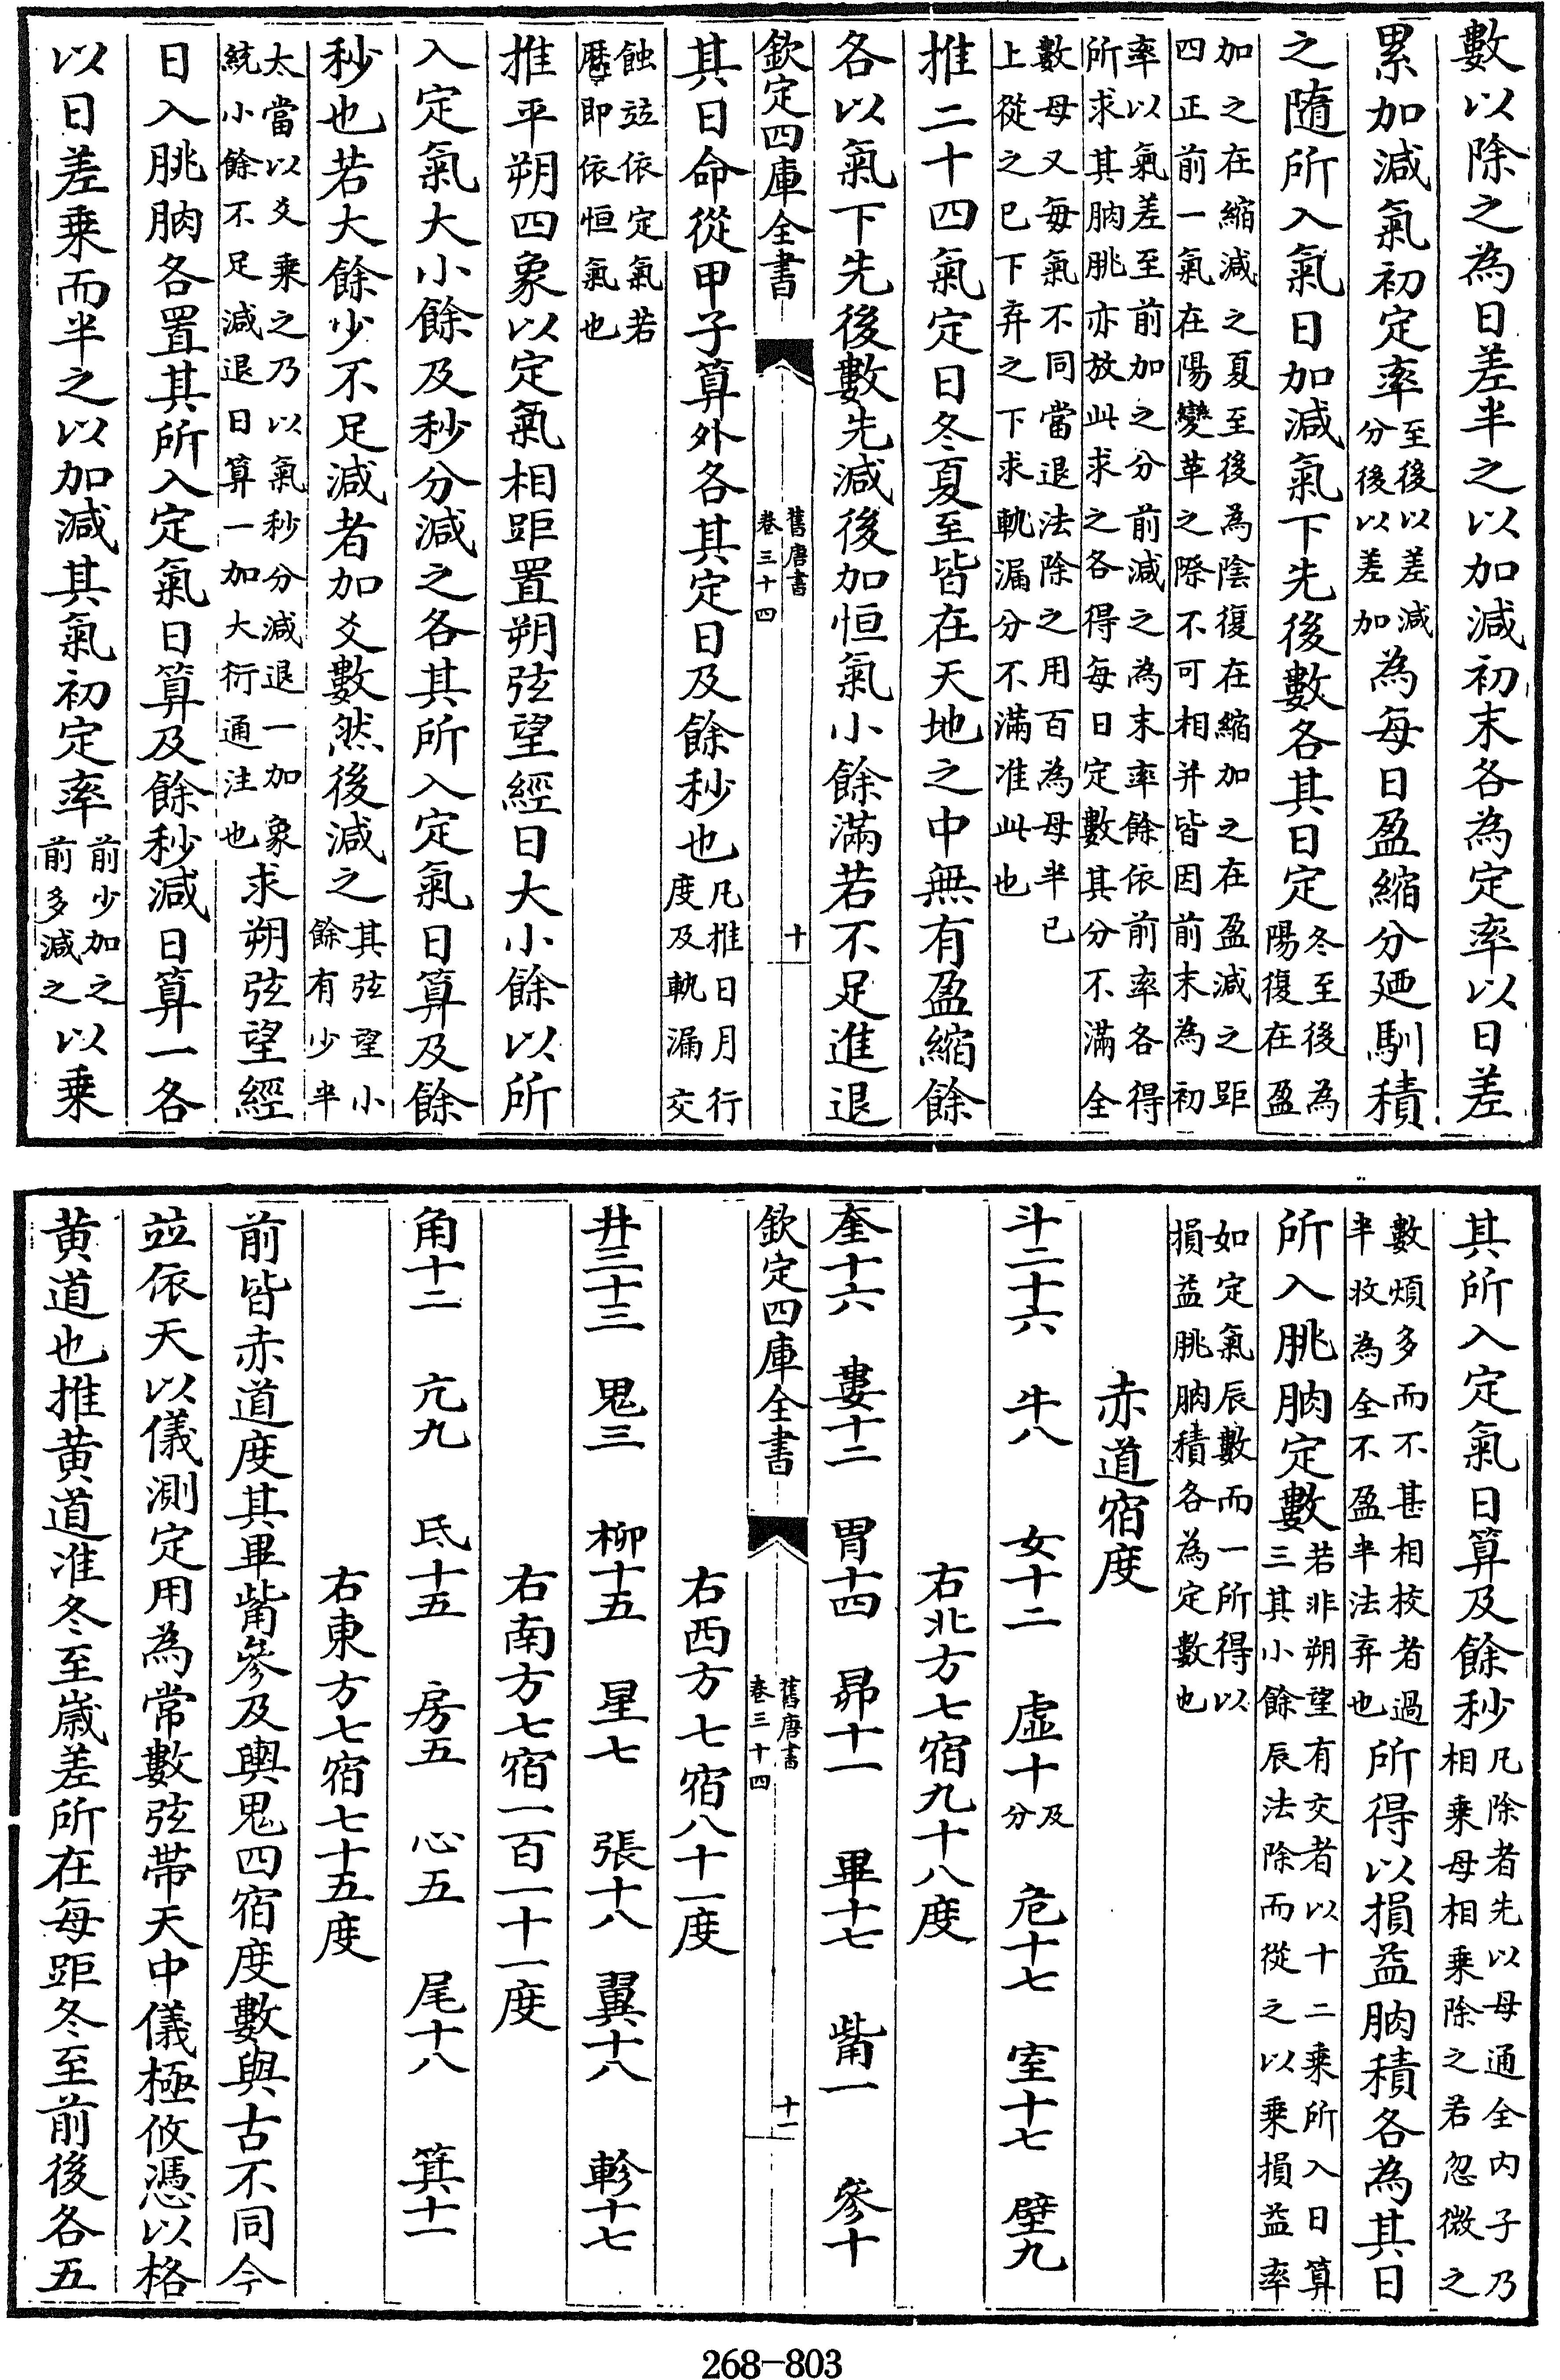 數以除之為日差半之以加減初末各為定率以日差
累加減氣初定率至後以差減分後以差加為每日盈縮分廼馴積
之隨所入氣日加減氣下先後數各其日定冬至後為陽復在盈
加之在縮減之夏至後為陰復在縮加之在盈減之距
四正前一氣在陽變革之際不可相并皆因前末為初
率以氣差至前加之分前減之為末率餘依前率各得
所求其朒朓亦放此求之各得每日定數其分不滿全
數母又每氣不同當退法除之用百為母半已
上從之已下弃之下求軌漏分不滿准此也
推二十四氣定日冬夏至皆在天地之中無有盈縮餘
各以氣下先後數先減後加恒氣小餘滿若不足進退
欽定四庫全書
舊唐書
卷三十四
十
其日命從甲子算外各其定日及餘秒也凡推日月行度及軌漏交
蝕竝依定氣若
曆即依恒氣也
推平朔四象以定氣相距置朔弦望經日大小餘以所
入定氣大小餘及秒分減之各其所入定氣日算及餘
秒也若大餘少不足減者加爻數然後減之其弦望小餘有少半
太當以爻乘之乃以氣秒分減退一加象
統小餘不足減退日算一加大衍通注也求朔弦望經
日入朓朒各置其所入定氣日算及餘秒減日算一各
以日差乗而半之以加減其氣初定率前少加之前多減之以乗
其所入定氣日算及餘秒凡除者先以母通全內子乃相乗母相乗除之若忽微之
數煩多而不甚相校者過
半收為全不盈半法弃也所得以損益朒積各為其日
所入朓朒定數若非朔望有交者以十二乗所入日算三其小餘辰法除而從之以乗損益率
如定氣辰數而一所得以
損益朓朒積各為定數也
赤道宿度
斗二十六 牛八 女十二 虛十及分 危十七 室十七 壁九
右北方七宿九十八度
奎十六 婁十二 胃十四 昴十一 畢十七 觜一 參十
欽定四庫全書
舊唐書
卷三十四
十一
右西方七宿八十一度
井三十三 鬼三 柳十五 星七 張十八 翼十八 軫十七
右南方七宿一百一十一度
角十二 亢九 氐十五 房五 心五 尾十八 箕十一
右東方七宿七十五度
前皆赤道度其畢觜參及輿鬼四宿度數與古不同今
竝依天以儀測定用為常數弦帶天中儀極攸憑以格
黃道也推黃道准冬至歲差所在每距冬至前後各五
268-803